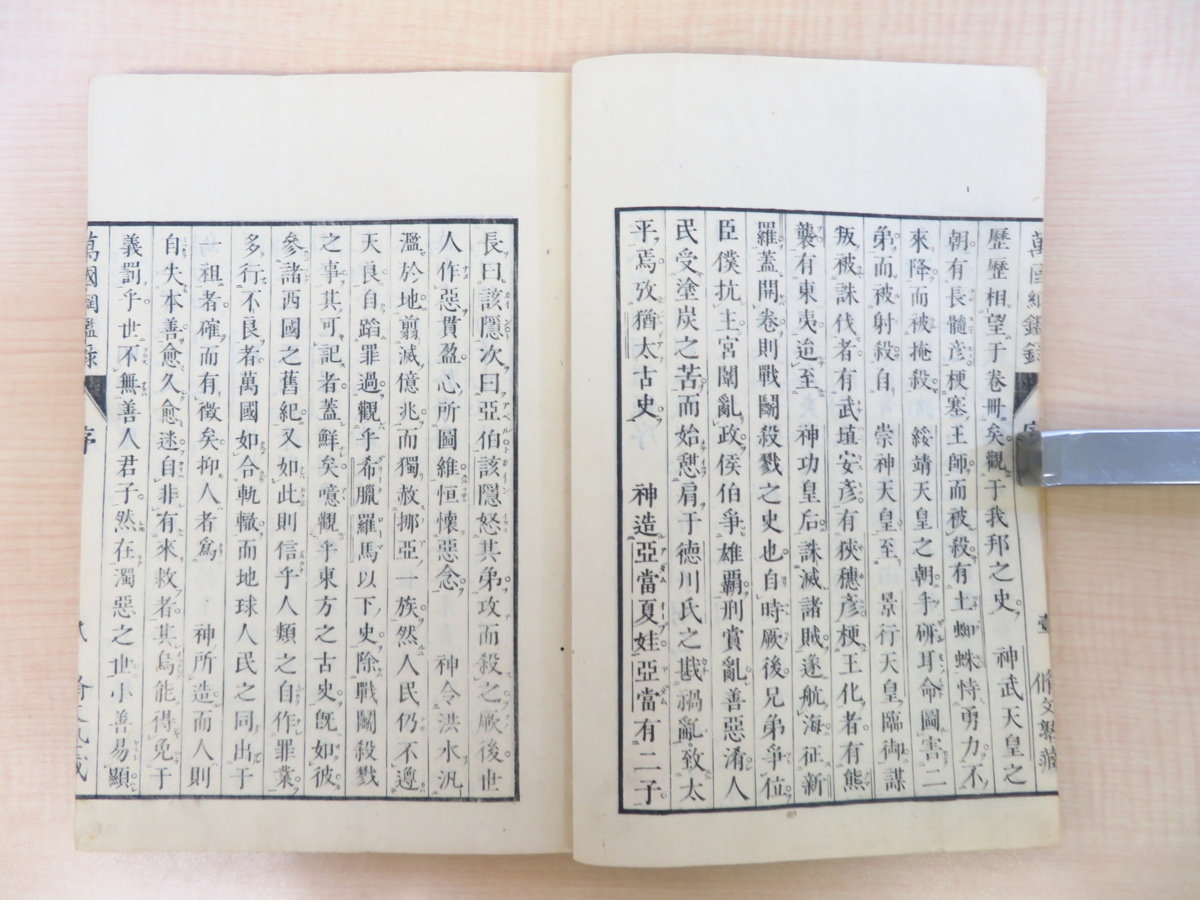 歷歷相望于卷冊矣觀于我邦之史 神武天皇之
朝有長髓彦梗塞王師而被殺有土蜘蛛恃勇力不
來降而被掩殺 綏靖天皇之朝手硏耳命圖害二
弟而被射殺自 崇神天皇至 景行天皇臨御謀
叛被誅伐者有武埴安彦有狹穗彦梗王化者有熊
襲有東夷迨至 神功皇后誅滅諸賊遂航海征新
羅蓋開卷則戰鬭殺戮之史也自時厥後兄弟爭位
臣僕抗主宮闈亂政侯伯爭雄覇刑賞亂善惡淆人
民受塗炭之苦而始憇肩于德川氏之戡禍亂致太
平焉攷猶太古史 神造亞當夏娃亞當有二子
長曰該隱次曰亞伯該隱怒其弟攻而殺之厥後世
人作惡貫盈心所圖維恒懷惡念 神令洪水汎
濫於地翦滅億兆而獨赦挪亞一族然人民仍不遵
天良自蹈罪過觀乎希臘羅馬以下史除戰鬭殺戮
之事其可記者蓋鮮矣噫觀乎東方之古史旣如彼
參諸西國之舊紀又如此則信乎人類之自作罪業
多行不良者萬國如合軌轍而地球人民之同出于
一祖者確而有徵矣抑人者爲 神所造而人則
自失本善愈久愈迷自非有來救者其烏能得免于
義罰乎世不無善人君子然在濁惡之世小善易顯
萬國綱鑑錄 序